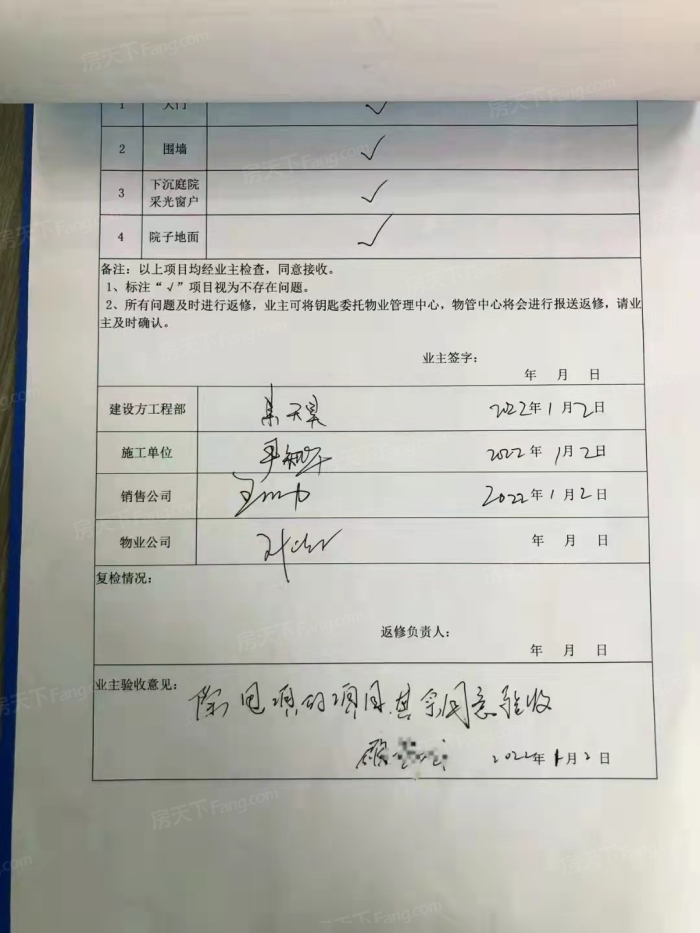 1 大门 ✓
2 围墙 ✓
3 下沉庭院采光窗户 ✓
4 院子地面 ✓
备注：以上项目均经业主检查，同意接收。
1、标注“√”项目视为不存在问题。
2、所有问题及时进行返修，业主可将钥匙委托物业管理中心，物管中心将会进行报送返修，请业
主及时确认。
业主签字：
年 月 日
建设方工程部 2022年1月2日
施工单位 2022年1月2日
销售公司 2022年1月2日
物业公司 年 月 日
复检情况：
返修负责人：
年 月 日
业主验收意见：除甩项的项目其余同意验收
2022年1月2日
房天下Fang.com